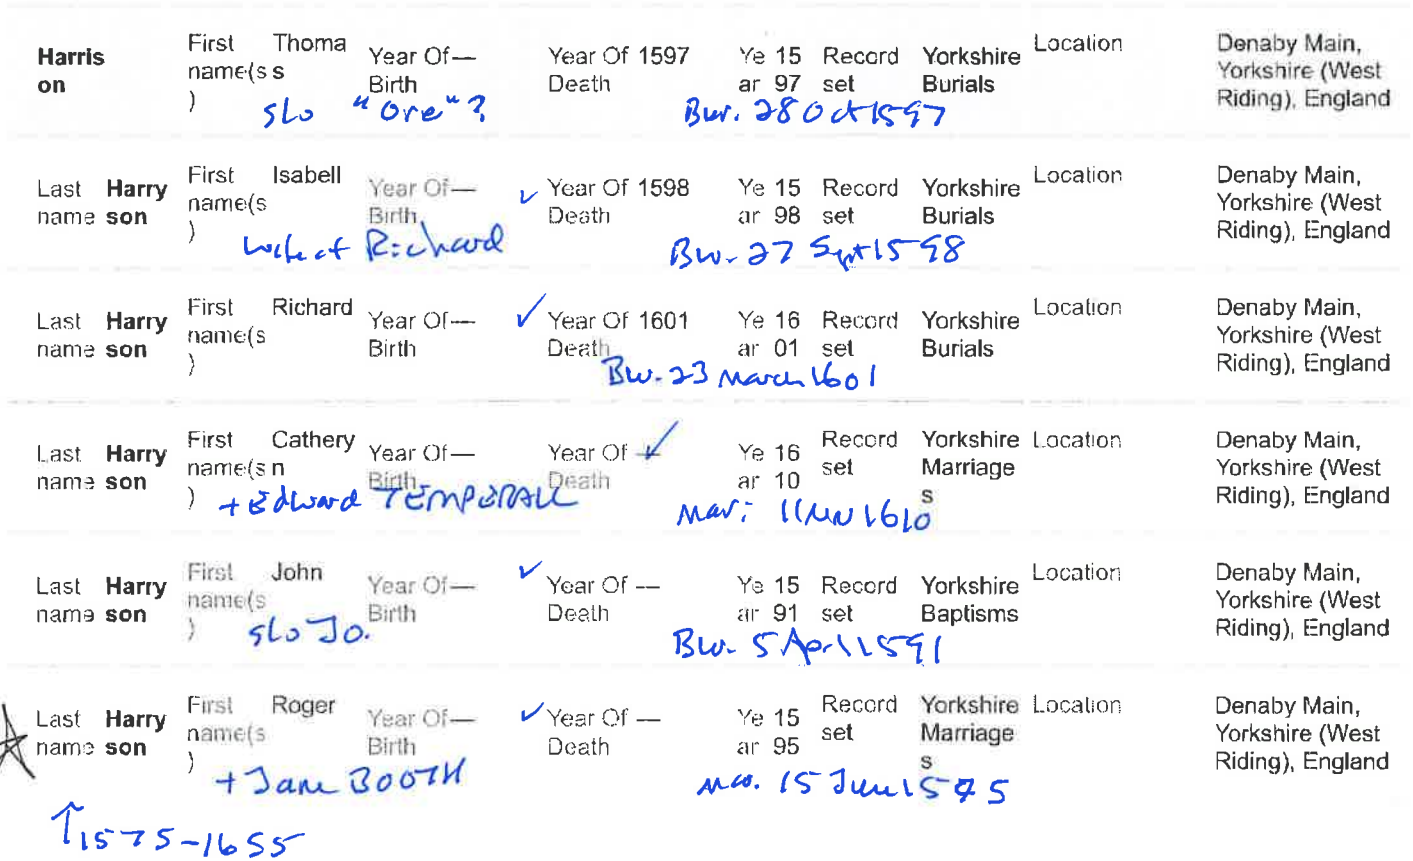 Harris on First name(s) Thomas Year Of Birth — Year Of Death 1597 Year 1597 Record set Yorkshire Burials Location Denaby Main, Yorkshire (West Riding), England
s/o "Ore"? Bur. 28 Oct 1597
Last name Harryson First name(s) Isabell Year Of Birth — ✓ Year Of Death 1598 Year 1598 Record set Yorkshire Burials Location Denaby Main, Yorkshire (West Riding), England
wife of Richard Bur. 27 Sept 1598
Last name Harryson First name(s) Richard Year Of Birth — ✓ Year Of Death 1601 Year 1601 Record set Yorkshire Burials Location Denaby Main, Yorkshire (West Riding), England
Bur. 23 March 1601
Last name Harryson First name(s) Catheryn Year Of Birth — Year Of Death — ✓ Year 1610 Record set Yorkshire Marriages Location Denaby Main, Yorkshire (West Riding), England
+ Edward TEMPERALL Mar: 11 1610
Last name Harryson First name(s) John Year Of Birth — ✓ Year Of Death — Year 1591 Record set Yorkshire Baptisms Location Denaby Main, Yorkshire (West Riding), England
s/o Jo. Bur. 5 April 1591
Last name Harryson First name(s) Roger Year Of Birth — ✓ Year Of Death — Year 1595 Record set Yorkshire Marriages Location Denaby Main, Yorkshire (West Riding), England
+ Jane BOOTH Mar. 15 June 1595
↑ 1575-1655